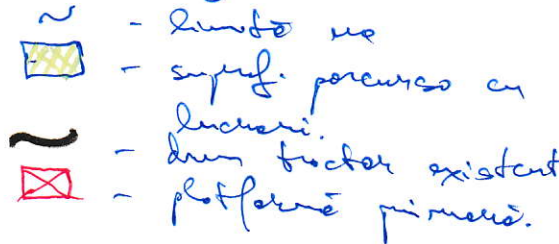 - limită ua
- supraf. parcursă cu
lucrări.
- drum tractor existent
- platformă primară.